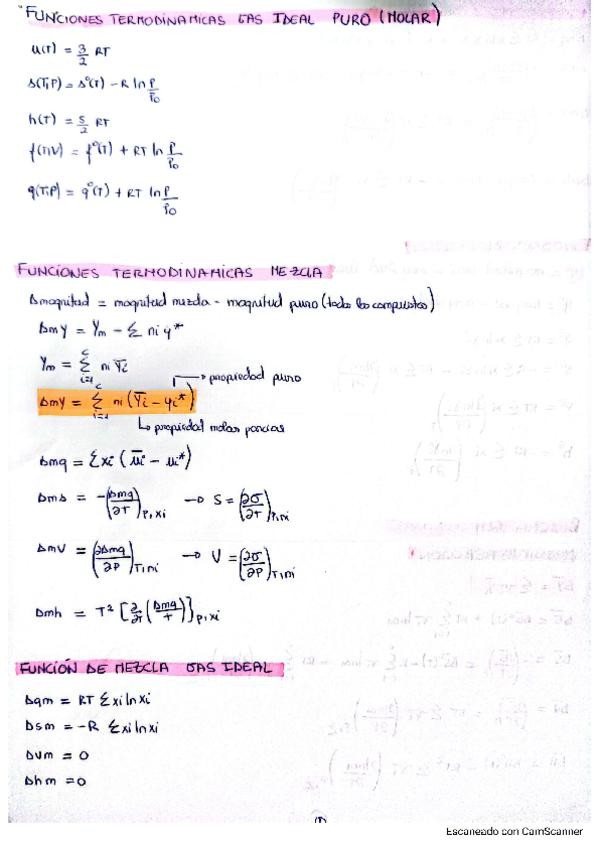 "FUNCIONES TERMODINAMICAS GAS IDEAL PURO (MOLAR)
u(T) = 3/2 RT
s(T,P) = s°(T) - R ln P/P0
h(T) = 5/2 RT
f(T,V) = f°(T) + RT ln P/P0
g(T,P) = g°(T) + RT ln P/P0
FUNCIONES TERMODINAMICAS MEZCLA
Δmagnitud = magnitud mezcla - magnitud puro (todos los compuestos)
ΔmY = Ym - Σ ni y*
Ym = Σ_{i=1}^{c} ni Ȳi
→ propiedad puro
ΔmY = Σ_{i=1}^{c} ni (Ȳi - yi*)
↳ propiedad molar parcial
Δmg = Σxi (μ̄i - μi*)
Δms = -(∂Δmg/∂T)P,xi → S = (∂σ/∂T)P,ni
Δmv = (∂Δmg/∂P)T,ni → V = (∂σ/∂P)T,ni
Δmh = T² [∂/∂T (Δmg/T)]P,xi
FUNCIÓN DE MEZCLA GAS IDEAL
Δgm = RT Σxi ln xi
Δsm = -R Σxi ln xi
Δvm = 0
Δhm = 0
(1)
Escaneado con CamScanner